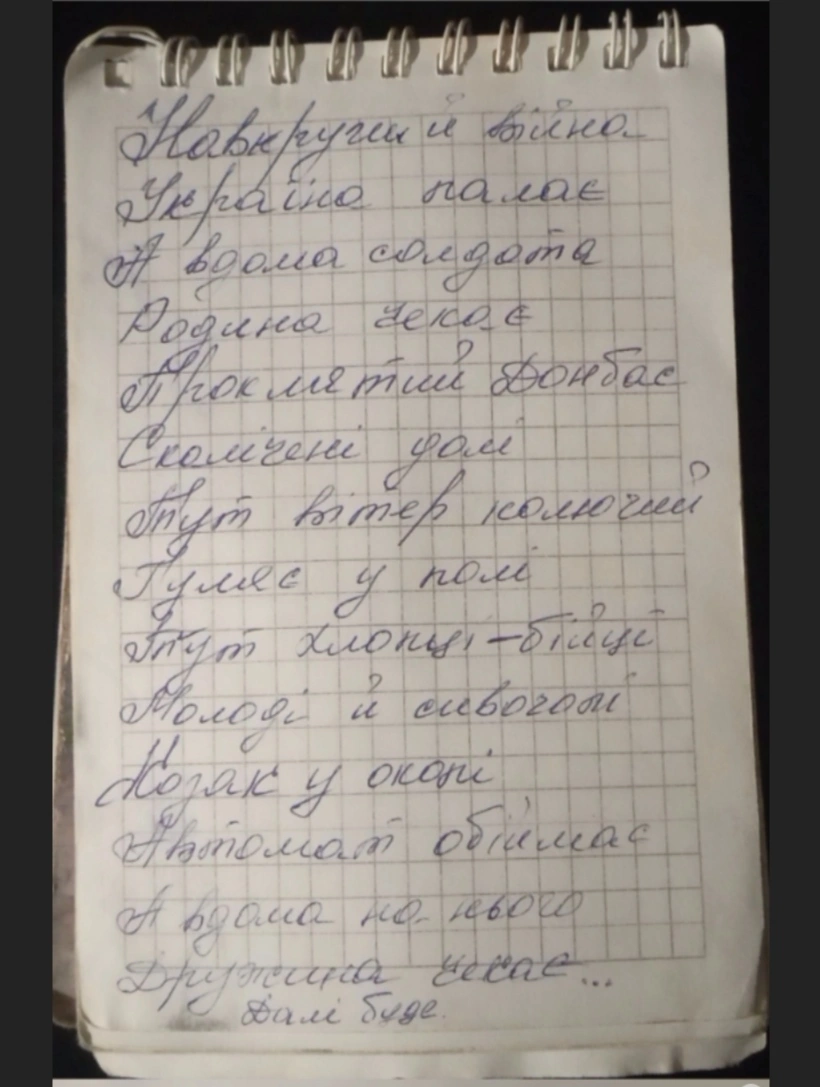 Навкруги й війна
Україна палає
А вдома солдата
Родина чекає
Проклятий Донбас
Скалічені долі
Тут вітер колючий
Гуляє у полі
Тут хлопці-бійці
Молоді й сивочолі
Козак у окопі
Автомат обіймає
А вдома на нього
Дружина чекає...
Далі буде.